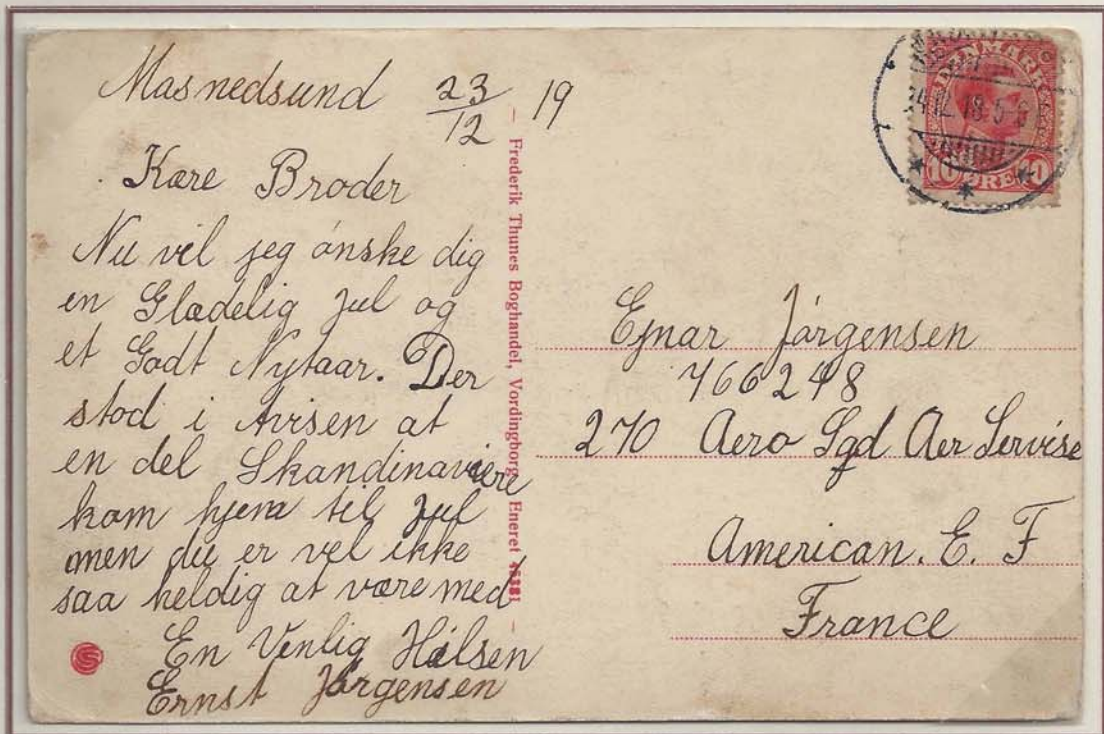 Masnedsund 23/12 19
Kære Broder
Nu vil jeg ønske dig
en Glædelig Jul og
et Godt Nytaar. Der
stod i Avisen at
en del Skandinaviere
kom hjem til Jul
men du er vel ikke
saa heldig at være med
En Venlig Hilsen
Ernst Jørgensen
– Frederik Thunes Boghandel, Vordingborg. Eneret –
DANMARK
10 ØRE 10
24.12.18. 5-6
Ejnar Jørgensen
766248
270 Aero Sqd Aer Servise
American. E. F
France